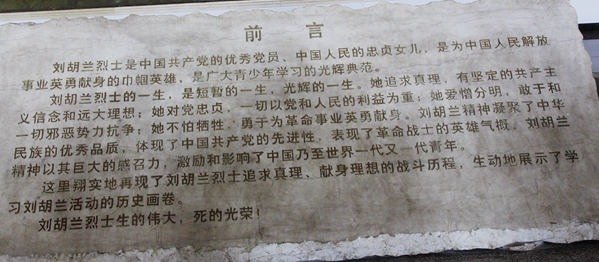 前言
刘胡兰烈士是中国共产党的优秀党员，中国人民的忠贞女儿，是为中国人民解放
事业英勇献身的巾帼英雄，是广大青少年学习的光辉典范。
刘胡兰烈士的一生，是短暂的一生，光辉的一生。她追求真理，有坚定的共产主
义信念和远大理想；她对党忠贞，一切以党和人民的利益为重；她爱憎分明，敢于和
一切邪恶势力抗争；她不怕牺牲，勇于为革命事业英勇献身。刘胡兰精神凝聚了中华
民族的优秀品质，体现了中国共产党的先进性，表现了革命战士的英雄气概。刘胡兰
精神以其巨大的感召力，激励和影响了中国乃至世界一代又一代青年。
这里翔实地再现了刘胡兰烈士追求真理、献身理想的战斗历程，生动地展示了学
习刘胡兰活动的历史画卷。
刘胡兰烈士生的伟大，死的光荣！